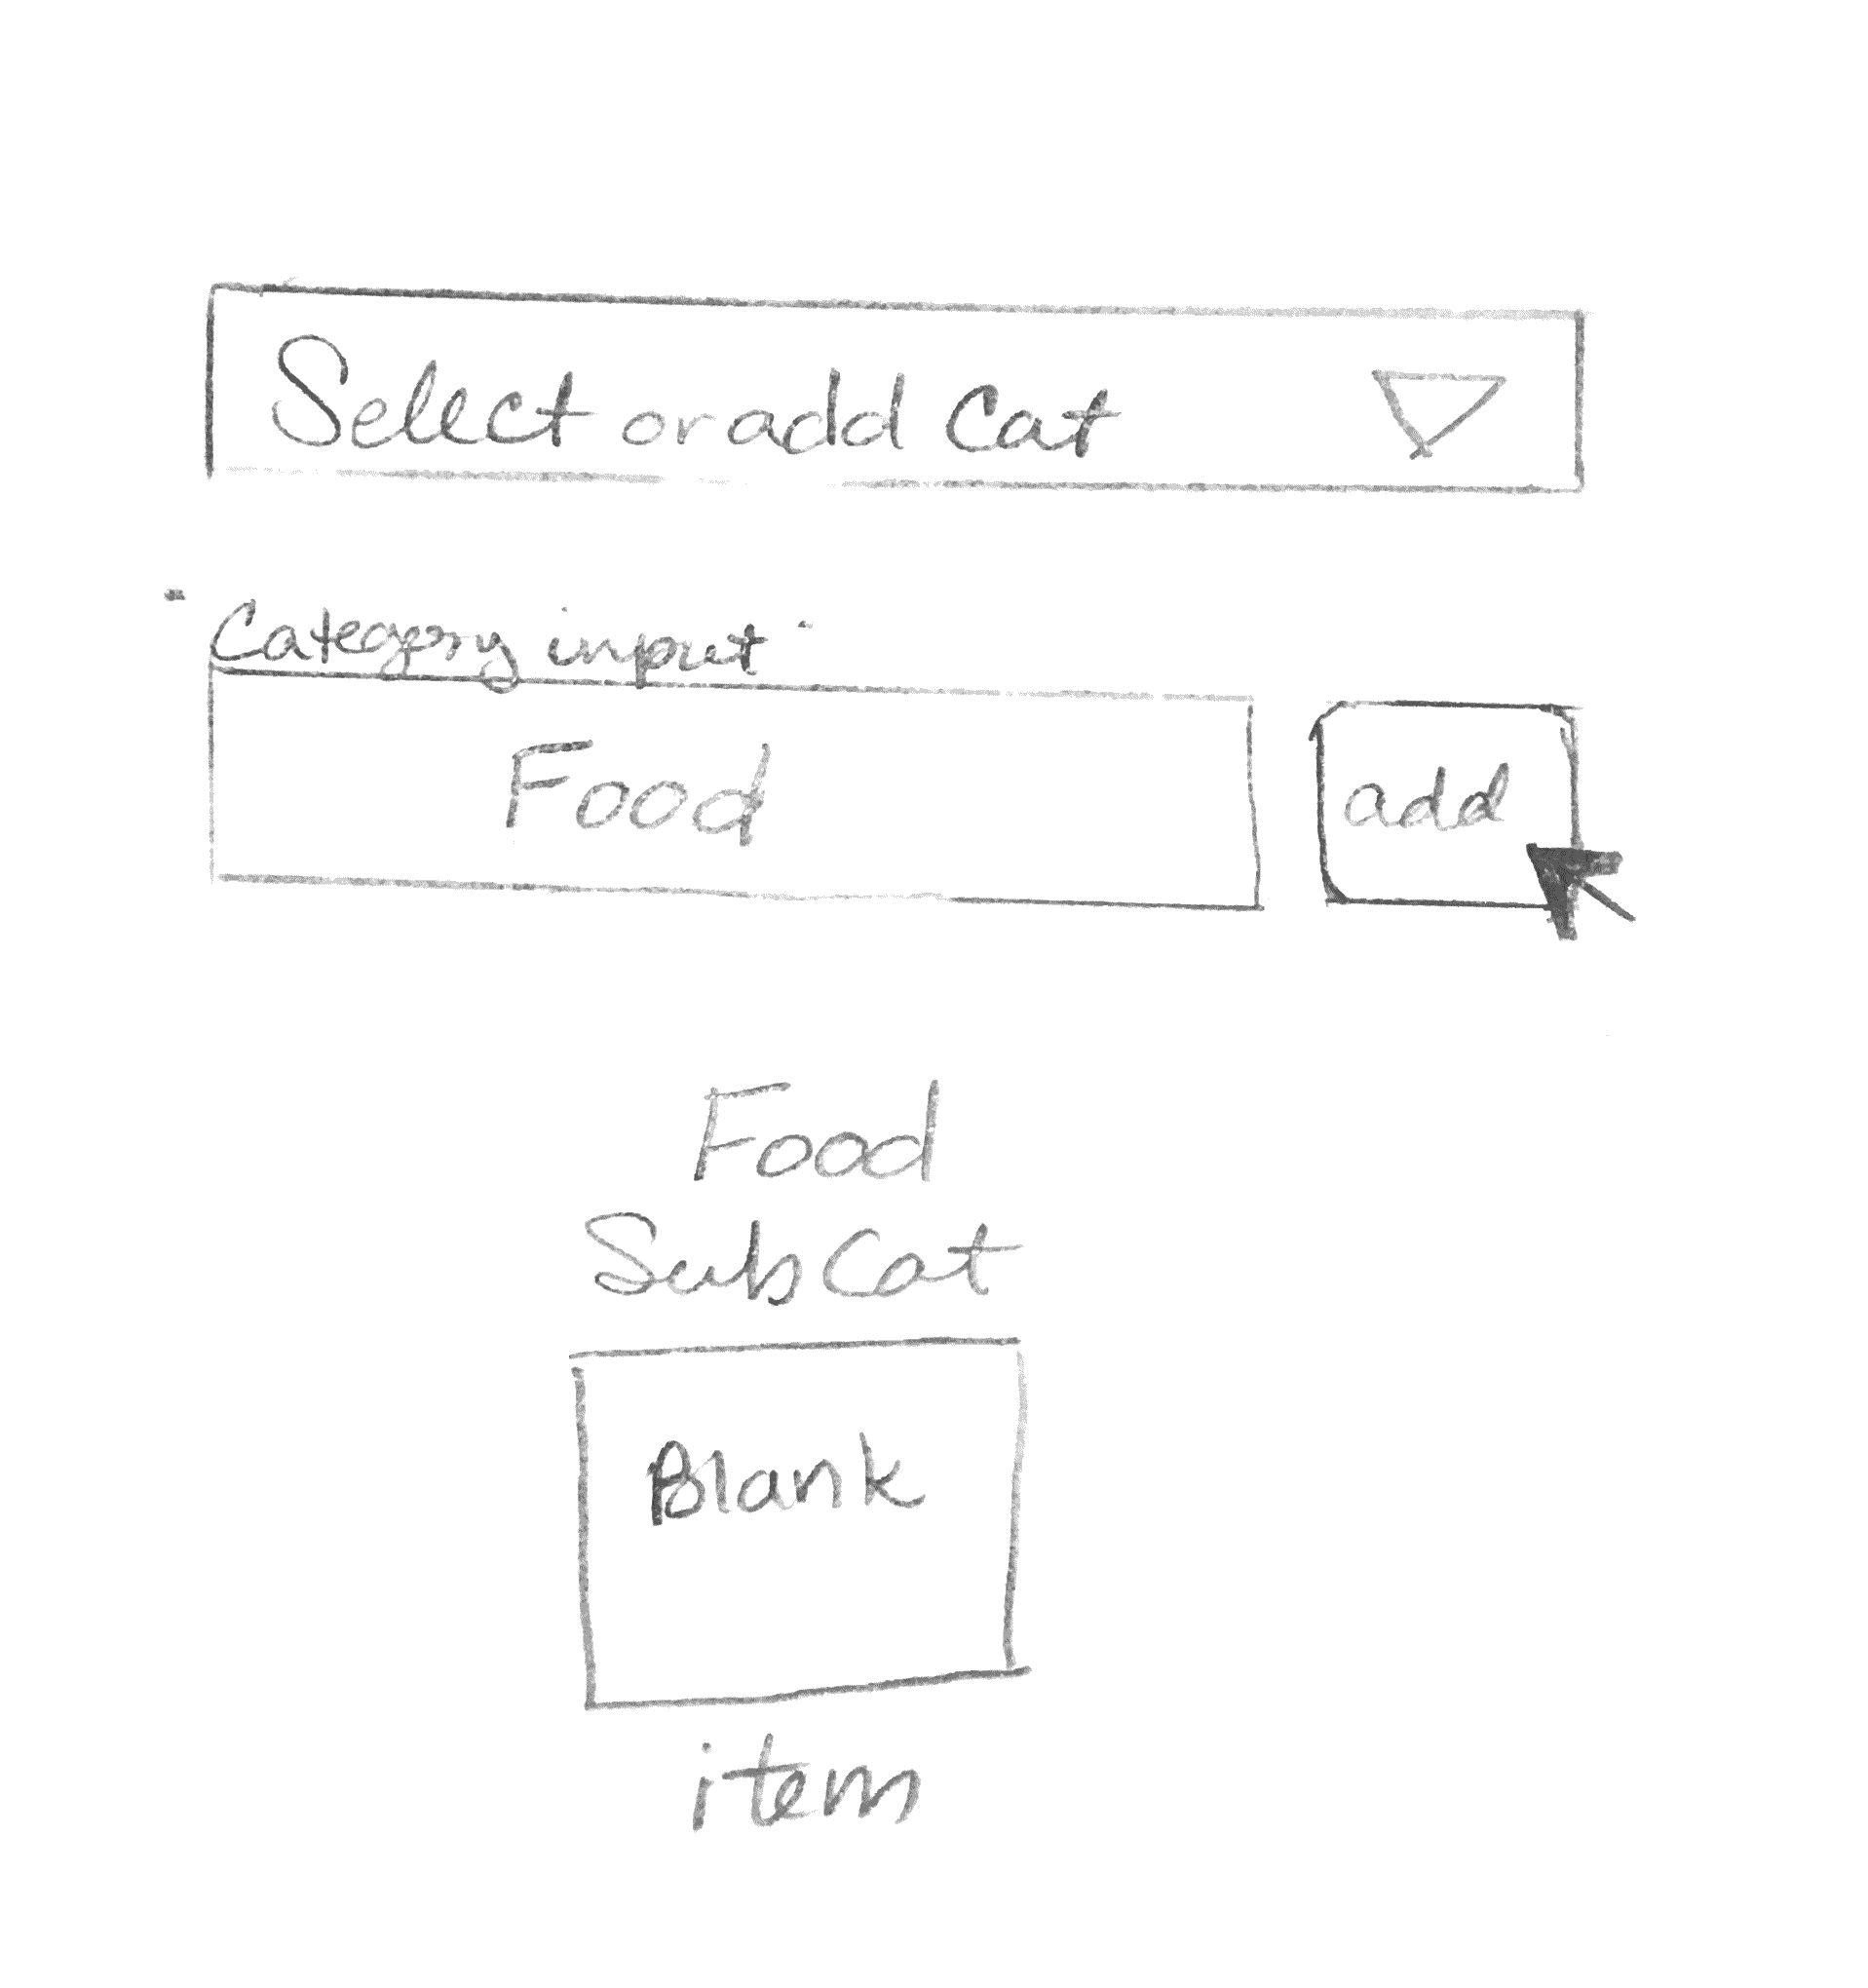 Select or add Cat
"Category input"
Food
add
Food
Sub Cat
Blank
item